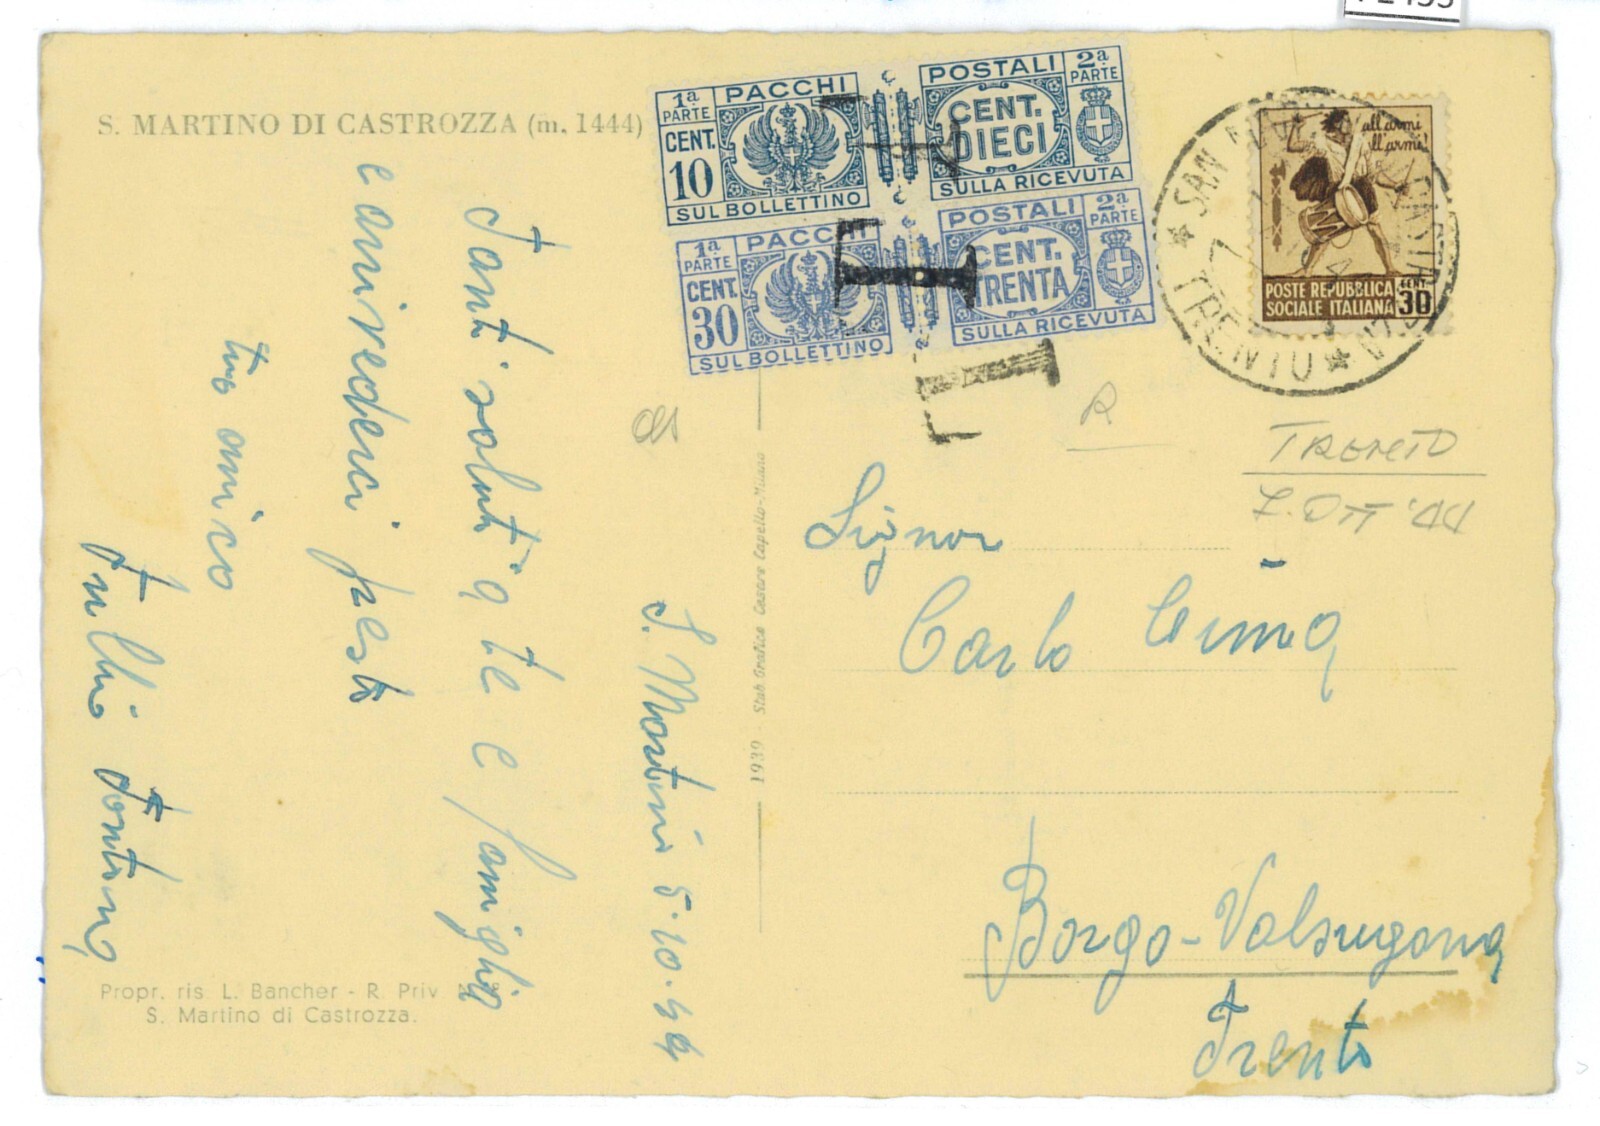 S. MARTINO DI CASTROZZA (m. 1444)
1ª PARTE PACCHI
CENT. 10
SUL BOLLETTINO
POSTALI 2ª PARTE
CENT. DIECI
SULLA RICEVUTA
1ª PARTE PACCHI
CENT. 30
SUL BOLLETTINO
POSTALI 2ª PARTE
CENT. TRENTA
SULLA RICEVUTA
T
T
T
all'armi
all'armi
POSTE REPUBBLICA
SOCIALE ITALIANA
CENT 30
TRENTO
R
TRENTO
7.OTT.'44
S. Martino 5.10.44
Tanti saluti a te e famiglia
e arrivederci presto
tuo amico
Tullio Fontana
Signor
Carlo Cima
Borgo-Valsugana
Trento
1939 Stab Grafico Cesare Capello-Milano
Propr. ris. L. Bancher - R. Priv.
S. Martino di Castrozza.